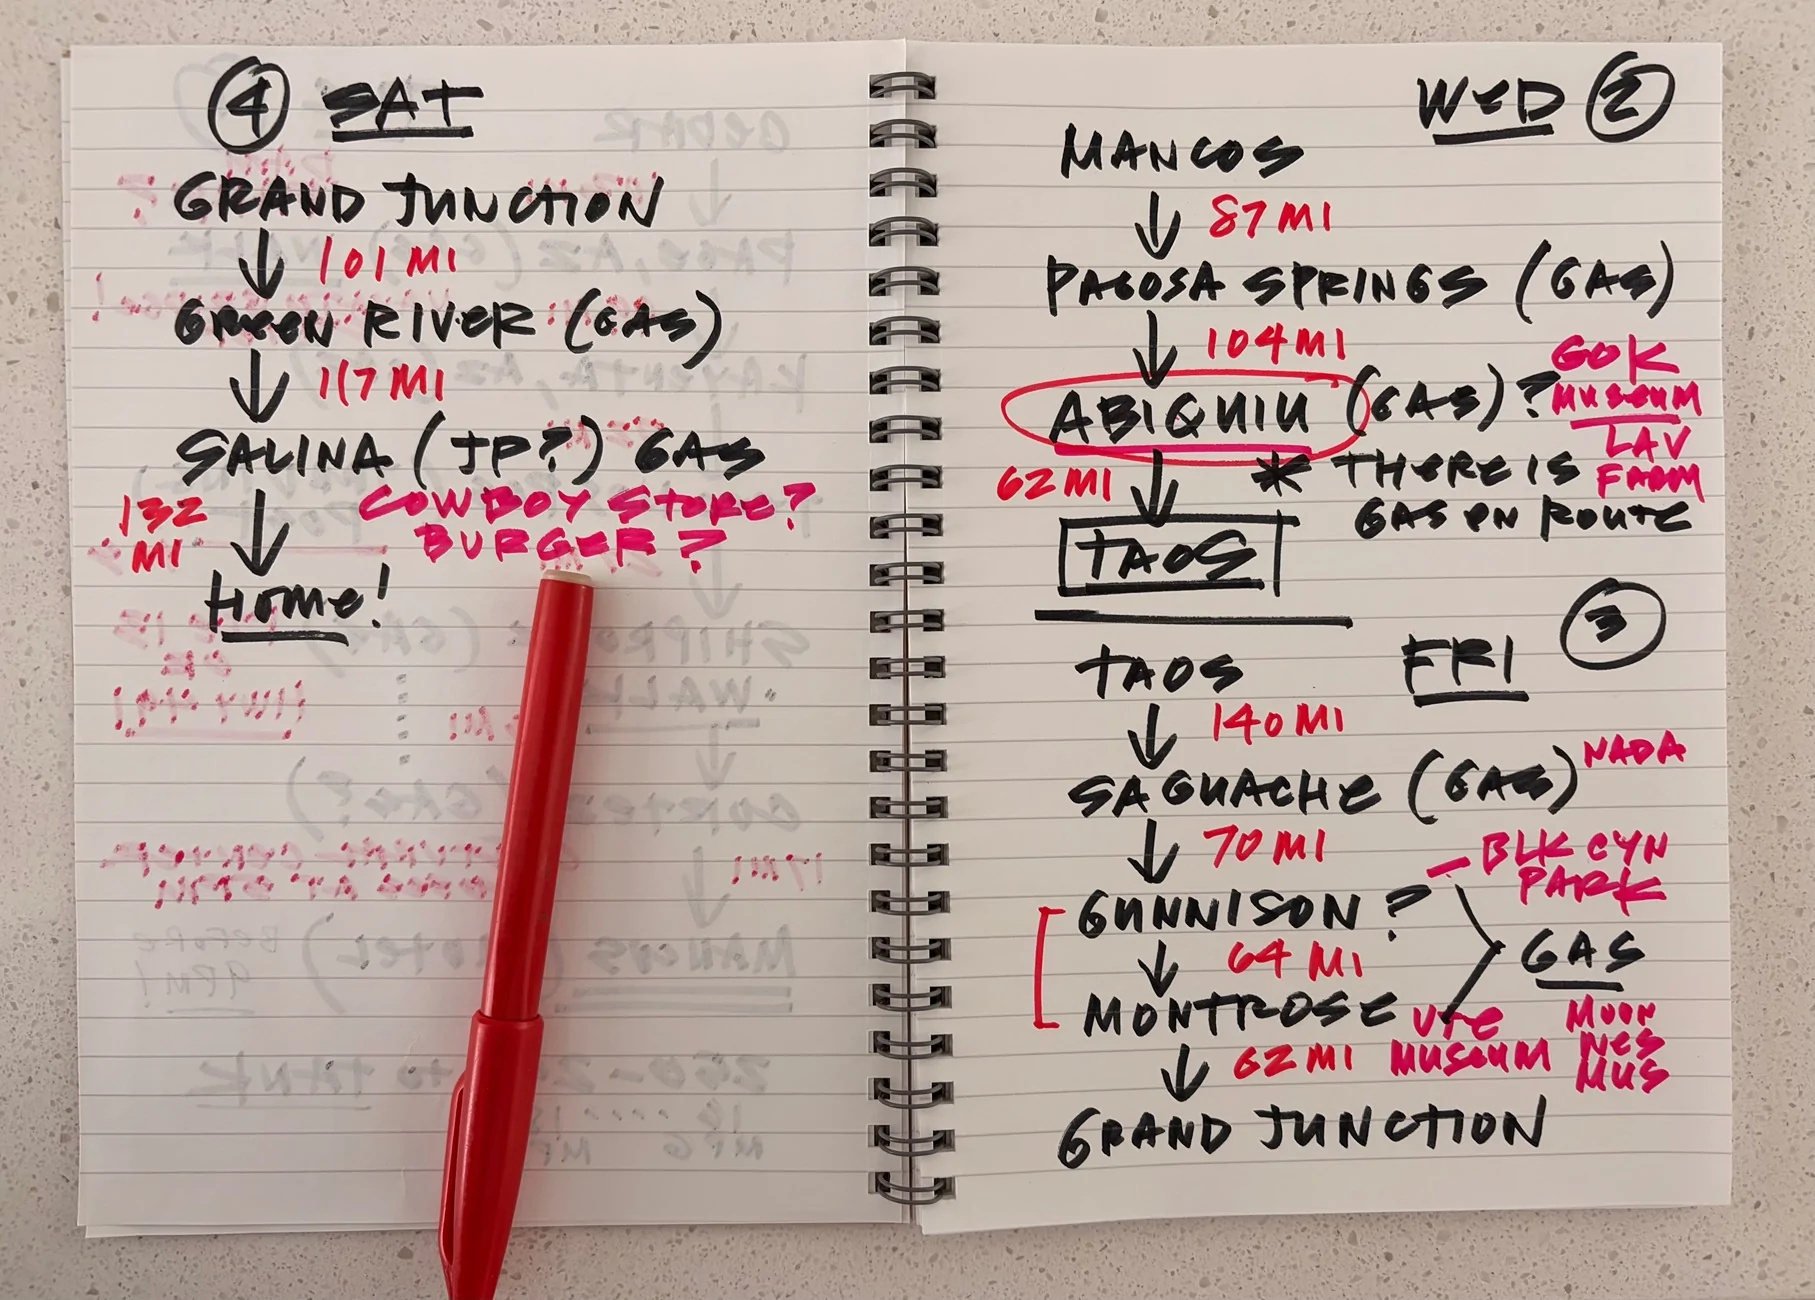 ④ SAT
GRAND JUNCTION
↓ 101 MI
GREEN RIVER (GAS)
↓ 117 MI
SALINA (JP?) GAS
COWBOY STORE?
BURGER?
↓ 132
MI
HOME!
WED ②
MANCOS
↓ 87 MI
PAGOSA SPRINGS (GAS)
↓ 104 MI
ABIQUIU (GAS)?
GOK
MUSEUM
LAV
FARM
62 MI ↓
* THERE IS
GAS EN ROUTE
TAOS
FRI ③
TAOS
↓ 140 MI
SAGUACHE (GAS) NADA
↓ 70 MI
– BLK CYN
PARK
GUNNISON?
↓ 64 MI
GAS
MONTROSE
UTE
MUSEUM
MOON
NES
MUS
↓ 62 MI
GRAND JUNCTION